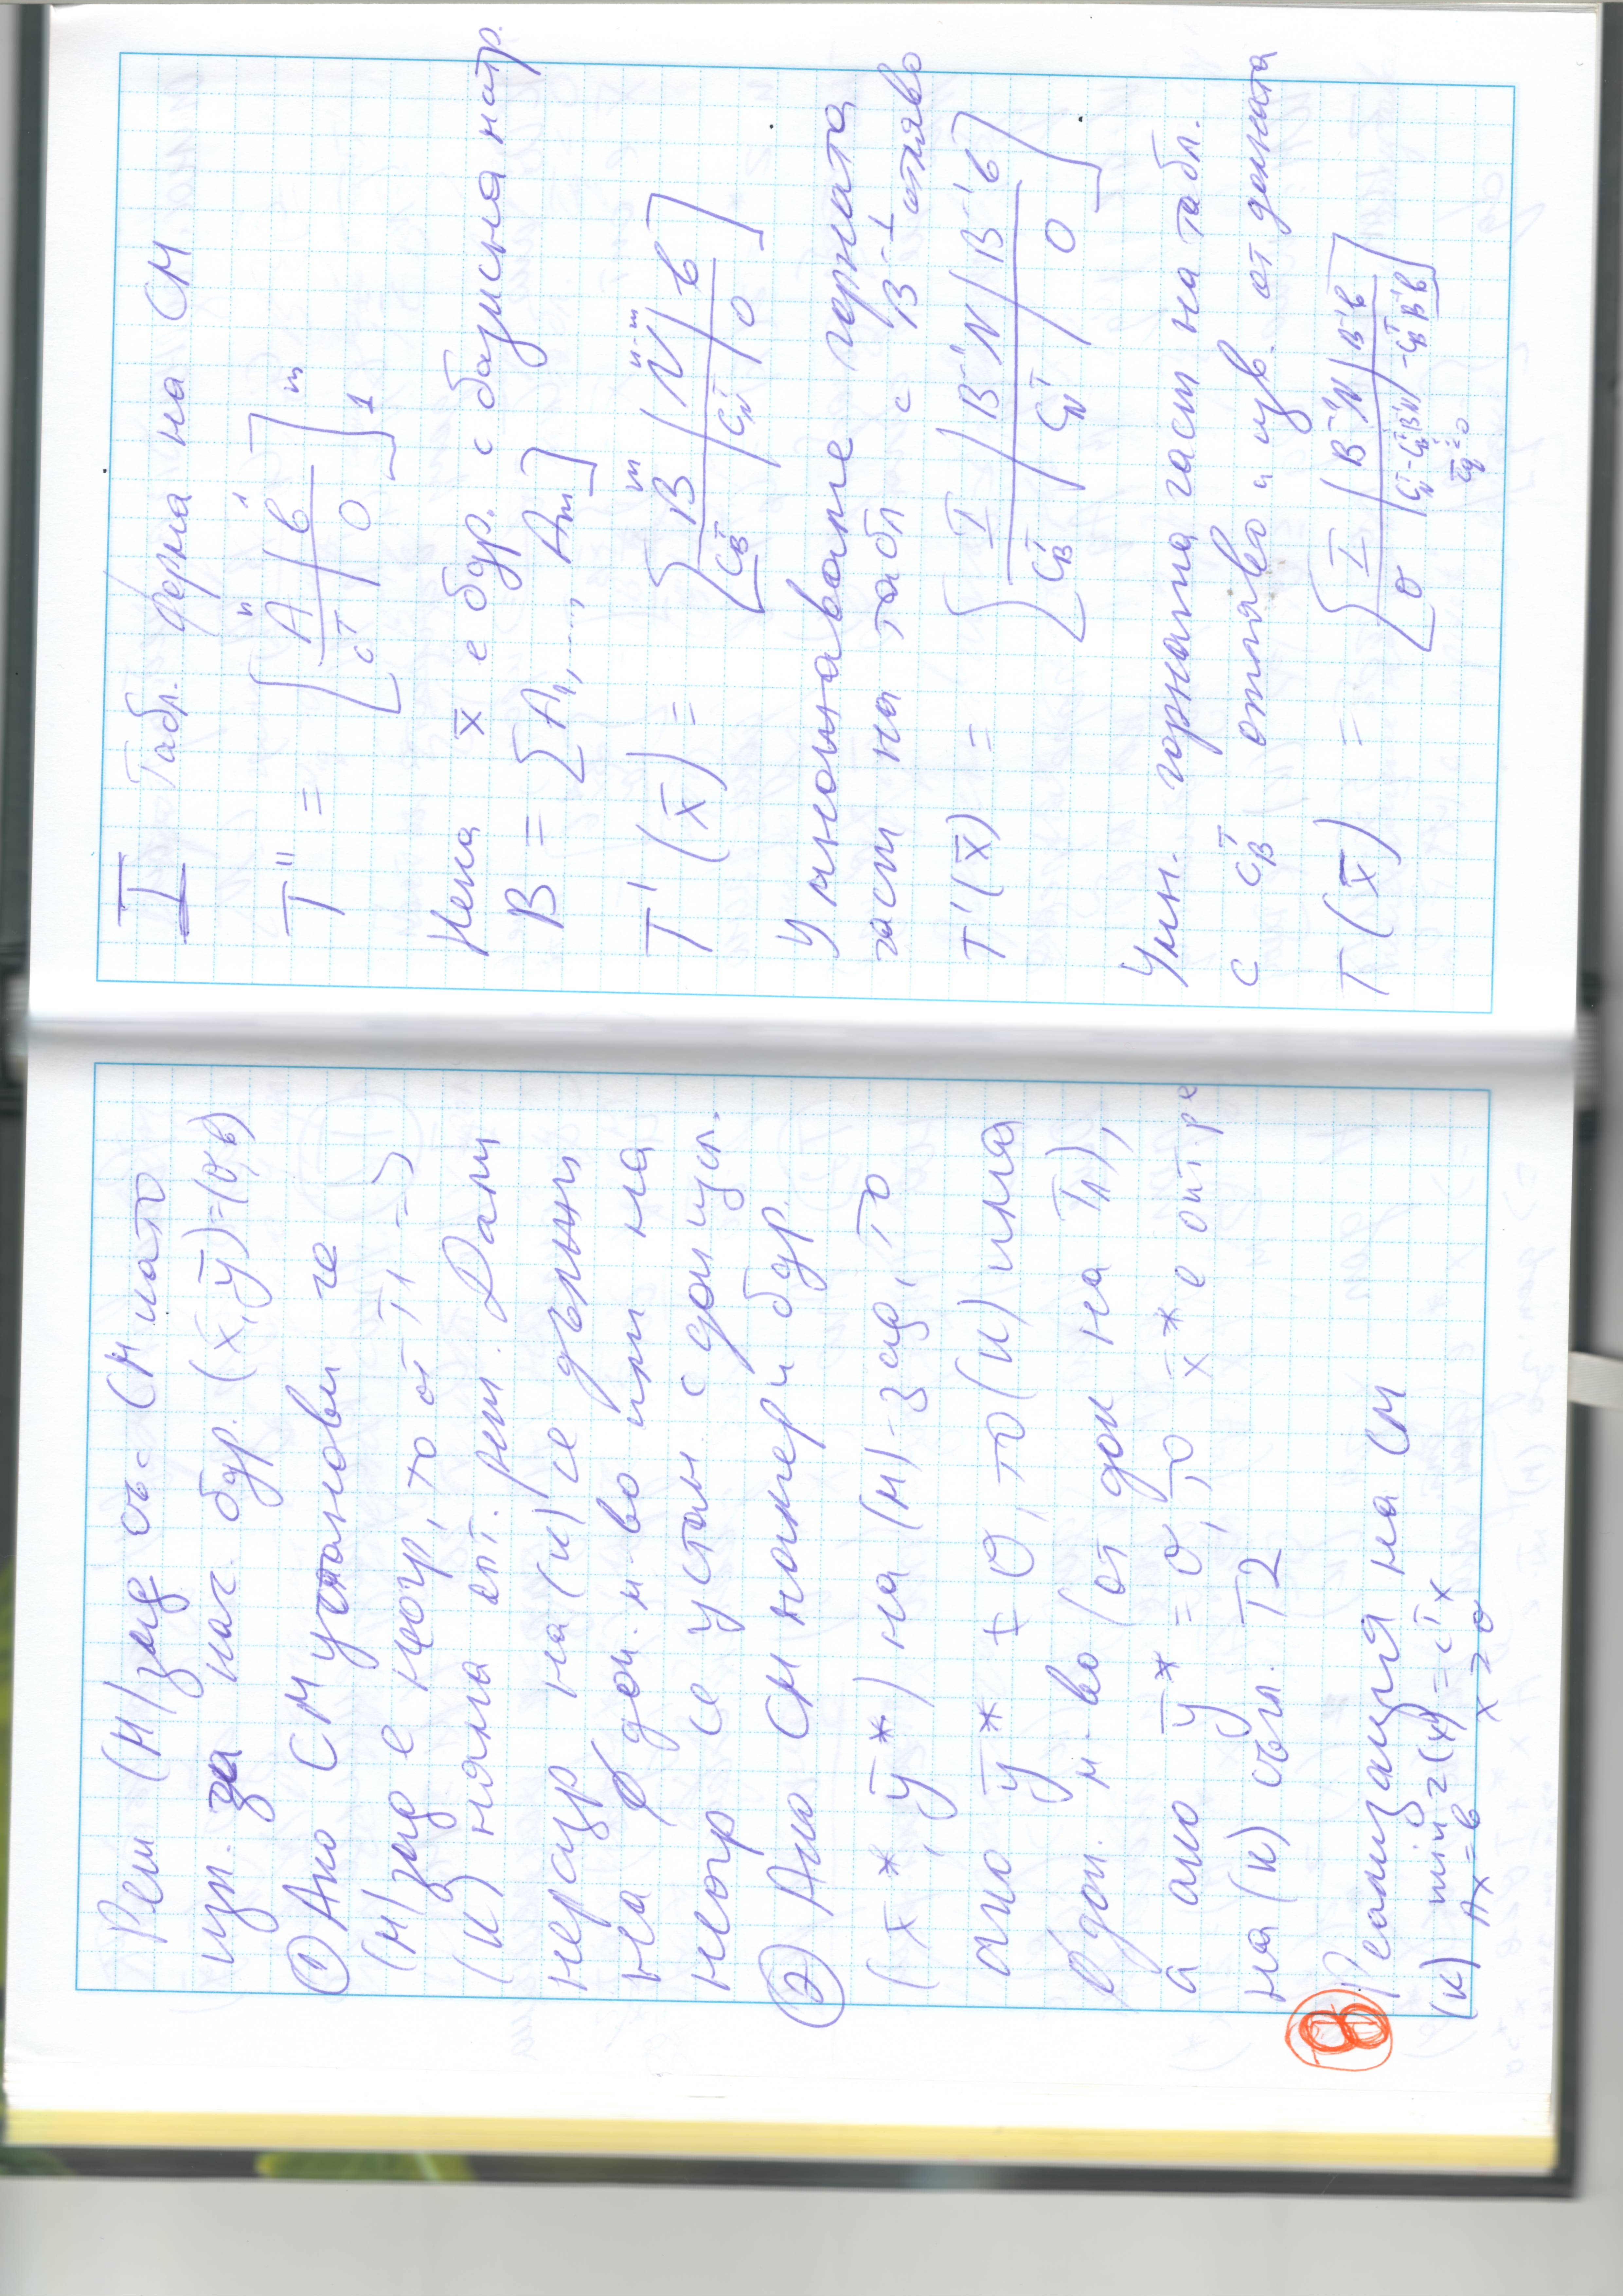 Реш (М) зад със СМ като
изп. за нач. бдр. (x̄, ȳ)=(0,b)
① Ако СМ установи че
(М) зад е неогр, то от Т1 =>
(К) няма опт. реш. Дали
неразр на (К) се дължи
на ∅ доп. м-во или на
неогр се устан с допусл.
② Ако СМ намери бдр.
(x̄*, ȳ*) на (М)-зад, то
ако ȳ* ≠ 0, то (К) има
∅ доп. м-во (от док на Т1),
а ако ȳ* = 0, то x̄* е опт ре
на (К) съгл. Т2
⑧ Реализация на СМ
(К) min z(x) = cᵀx
Ax = b
x ≥ 0
I Табл. форма на СМ
T'' = [ A | b ; cᵀ | 0 ] n 1 m 1
Нека x̄ е бдр. с базисна матр.
B = [A₁, ..., Aₘ]
T'(x̄) = [ B | N | b ; c_Bᵀ | c_Nᵀ | 0 ] m n-m
Умножаваме горната
част на табл с B⁻¹ отляво
T'(x̄) = [ I | B⁻¹N | B⁻¹b ; c_Bᵀ | c_Nᵀ | 0 ]
Умн. горната част на табл.
с c_Bᵀ отляво и изв. от долната
T(x̄) = [ I | B⁻¹N | B⁻¹b ; 0 | c_Nᵀ-c_BᵀB⁻¹N | -c_BᵀB⁻¹b ]